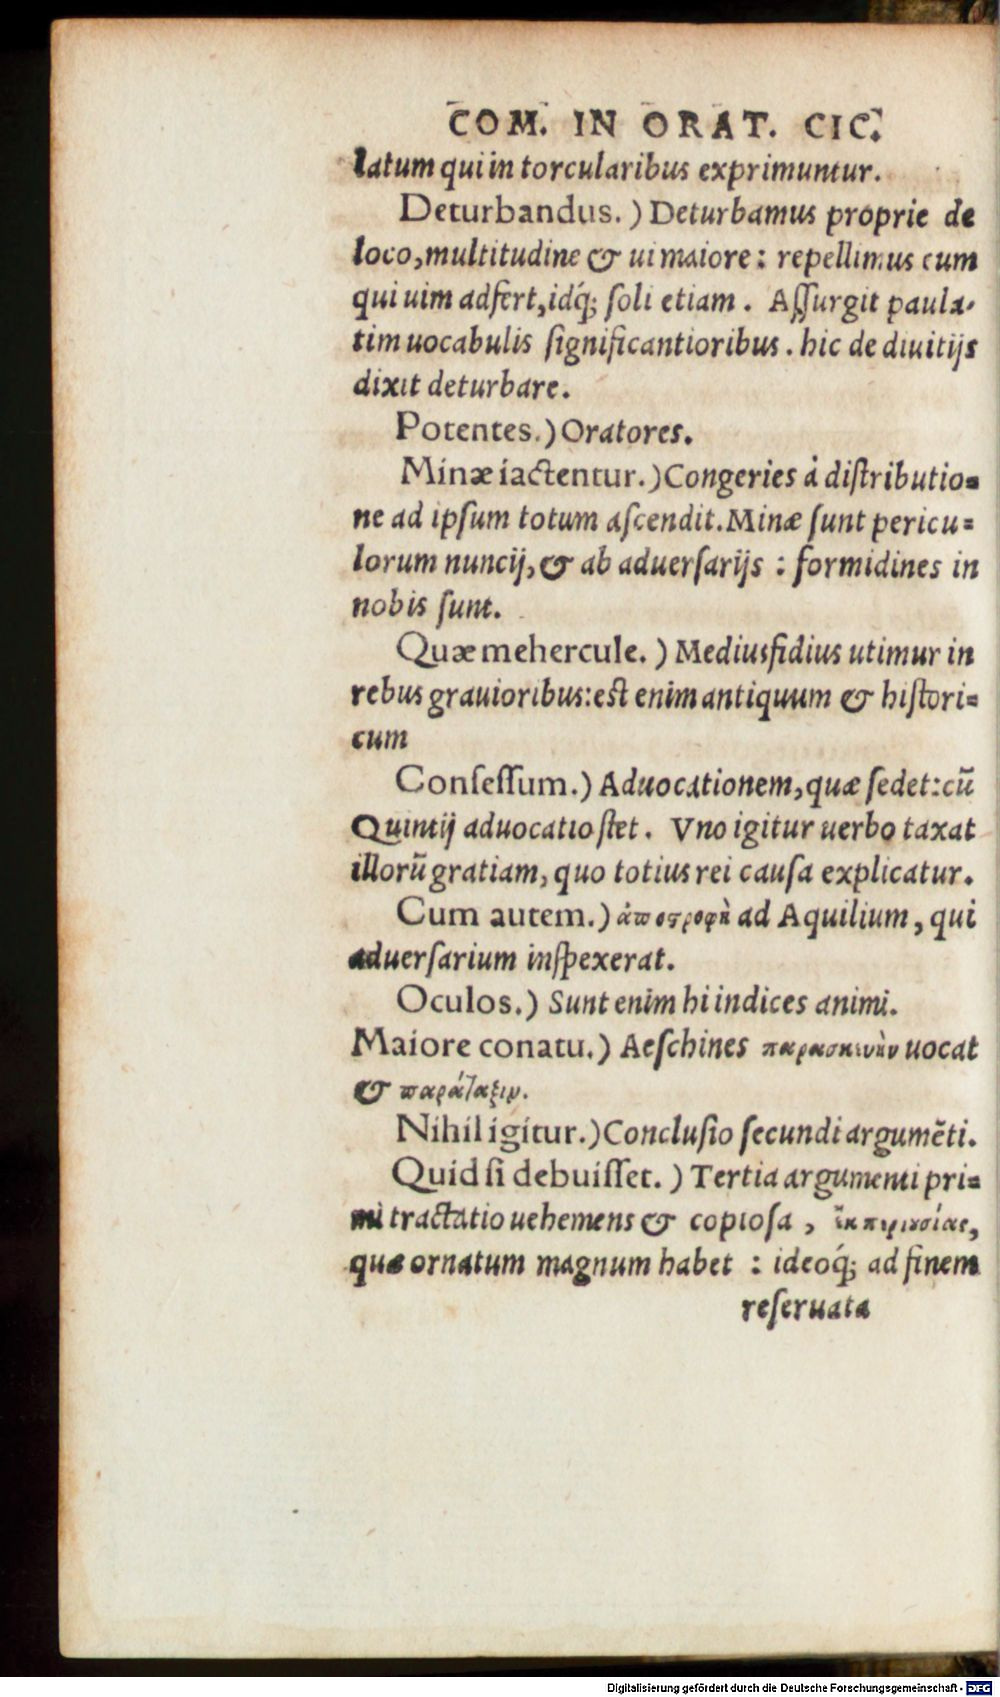 COM. IN ORAT. CIC.
latum qui in torcularibus exprimuntur.
Deturbandus.) Deturbamus proprie de
loco, multitudine & ui maiore: repellimus eum
qui uim adfert, idq́; soli etiam. Aſſurgit paula-
tim uocabulis ſignificantioribus. hic de diuitijs
dixit deturbare.
Potentes.) Oratores.
Minæ iactentur.) Congeries à diſtributio=
ne ad ipſum totum aſcendit. Minæ ſunt pericu=
lorum nuncij, & ab aduerſarijs: formidines in
nobis ſunt.
Quæ mehercule.) Mediusfidius utimur in
rebus grauioribus: eſt enim antiquum & hiſtori=
cum
Conſeſſum.) Aduocationem, quæ ſedet: cū
Quintij aduocatio ſtet. Vno igitur uerbo taxat
illorū gratiam, quo totius rei cauſa explicatur.
Cum autem.) ἀποστροφὴ ad Aquilium, qui
aduerſarium inſpexerat.
Oculos.) Sunt enim hi indices animi.
Maiore conatu.) Aeſchines παρασκευὴν uocat
& παράταξιν.
Nihil igitur.) Concluſio ſecundi argumēti.
Quid ſi debuiſſet.) Tertia argumenti pri=
mi tractatio uehemens & copioſa, ἐκ περιουσίας,
quæ ornatum magnum habet: ideoq́; ad finem
reſeruata
Digitalisierung gefördert durch die Deutsche Forschungsgemeinschaft - DFG